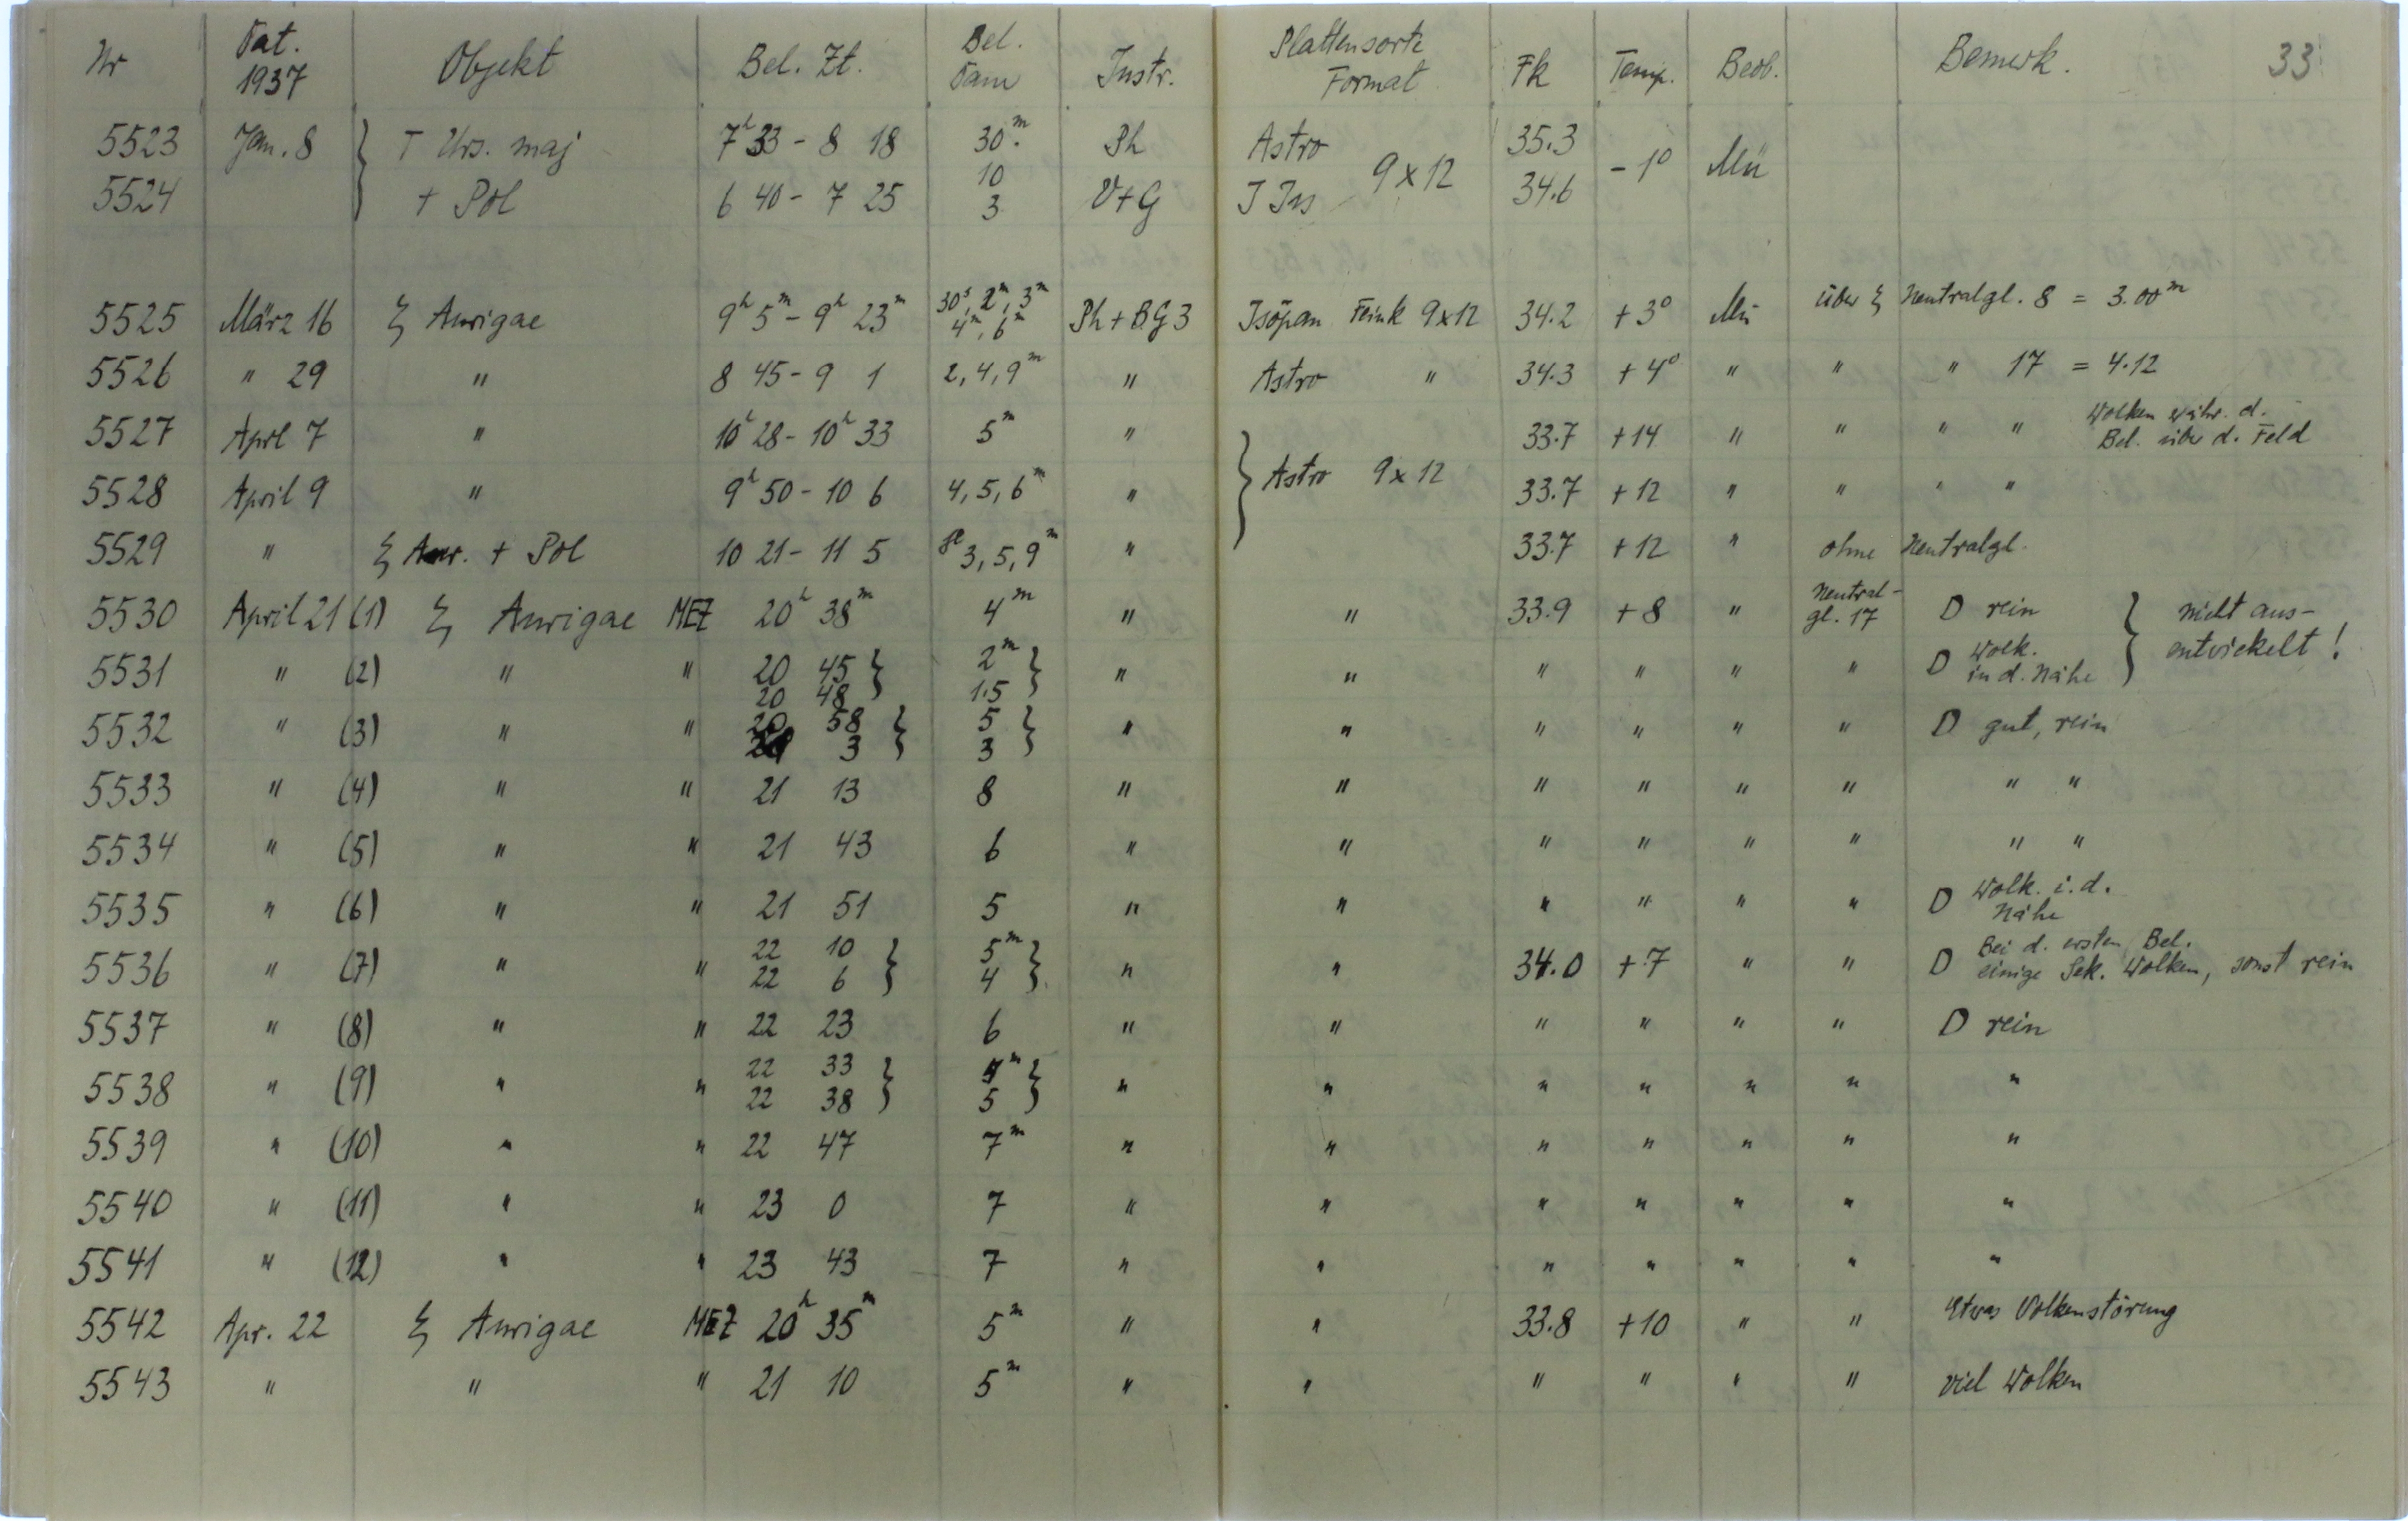 Nr Dat. 1937 Objekt Bel. Zt. Bel. Dau Instr. Plattensorte Format Fk Temp. Beob. Bemerk. 33
5523 Jan. 8 } T Urs. maj 7h 33 - 8 18 30m. Ph Astro 9 x 12 35.3 - 1° Mü
5524 + Pol 6 40 - 7 25 10 3 V+G J Iss 34.6
5525 März 16 ξ Aurigae 9h 5m - 9h 23m 30s, 2m, 3m 4m, 6m Ph + BG 3 Isopan Feink 9x12 34.2 + 3° Mü über ξ Neutralgl. 8 = 3.00m
5526 " 29 " 8 45 - 9 1 2, 4, 9m " Astro " 34.3 + 4° " " " 17 = 4.12
5527 Aprl 7 " 10h 28 - 10h 33 5m " } Astro 9 x 12 33.7 + 14 " " " " Wolken währ. d. Bel. über d. Feld
5528 April 9 " 9h 50 - 10 6 4, 5, 6m " 33.7 + 12 " " " "
5529 " ξ Aur. + Pol 10 21 - 11 5 3, 5, 9m " 33.7 + 12 " ohne Neutralgl.
5530 April 21 (1) ξ Aurigae MEZ 20h 38m 4m " " 33.9 + 8 " Neutral- gl. 17 D rein } nicht aus-
5531 " (2) " " 20 45 } 20 48 2m } 1.5 " " " " " " D Wolk. in d. Nähe entwickelt!
5532 " (3) " " 20 58 } 21 3 5 } 3 " " " " " " D gut, rein
5533 " (4) " " 21 13 8 " " " " " " " "
5534 " (5) " " 21 43 6 " " " " " " " "
5535 " (6) " " 21 51 5 " " " " " " D Wolk. i. d. Nähe
5536 " (7) " " 22 10 } 22 6 5m } 4 " " 34.0 + 7 " " D Bei d. ersten Bel. einige Sek. Wolken, sonst rein
5537 " (8) " " 22 23 6 " " " " " " D rein
5538 " (9) " " 22 33 } 22 38 } 5 " " " " " " "
5539 " (10) " " 22 47 7m " " " " " " "
5540 " (11) " " 23 0 7 " " " " " " "
5541 " (12) " " 23 43 7 " " " " " " "
5542 Apr. 22 ξ Aurigae MEZ 20h 35m 5m " " 33.8 + 10 " " Etwas Wolkenstörung
5543 " " " 21 10 5m " " " " " " viel Wolken